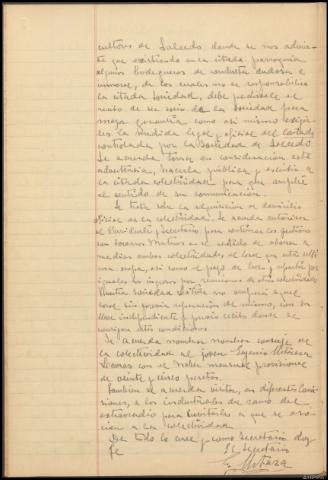 cultores de Salcedo donde se nos advier-
te que existiendo en la citada parroquia
algunos Bodegueros de conducta dudosa e
inmoral, de los cuales no se responsabiliza
la citada Sociedad, debe pedírsele el
visto de su socio de la Sociedad para
mayor garantía como así mismo exigir-
les la medida legal y oficial del
controlada por la Sociedad de Salcedo.
Se acuerda tomar en consideración esta
advertencia, hacerla pública y escribir a
la citada colectividad para que amplíe
el sentido de su comunicación.
Se trata sobre la adquisición de domicilio
oficial de la colectividad. Se acuerda autorizar
al Presidente y Secretario para continuar las gestiones
con Socorros Mutuos en el sentido de abonar a
medias ambas colectividades el local que esta
ocupa, así como el pago de luz, y repartir por
iguales los ingresos por reuniones de otras colectividades.
Nuestra Sociedad Latina no ocupará aquel
local sin previa reparación del mismo, con su
llave independiente y previo recibo donde se
consignen estas condiciones.
Se acuerda nombrar nombrar conserje de
la colectividad al joven Eugenio
con el haber mensual provisional
de veinte y cinco pesetas.
También se acuerda visitar, en diferentes Comi-
siones, a los industriales de ramo del
extrarradio para invitarles a que se aso-
cien a la colectividad.
De todo lo cual y como Secretario doy
fe
El Secretario